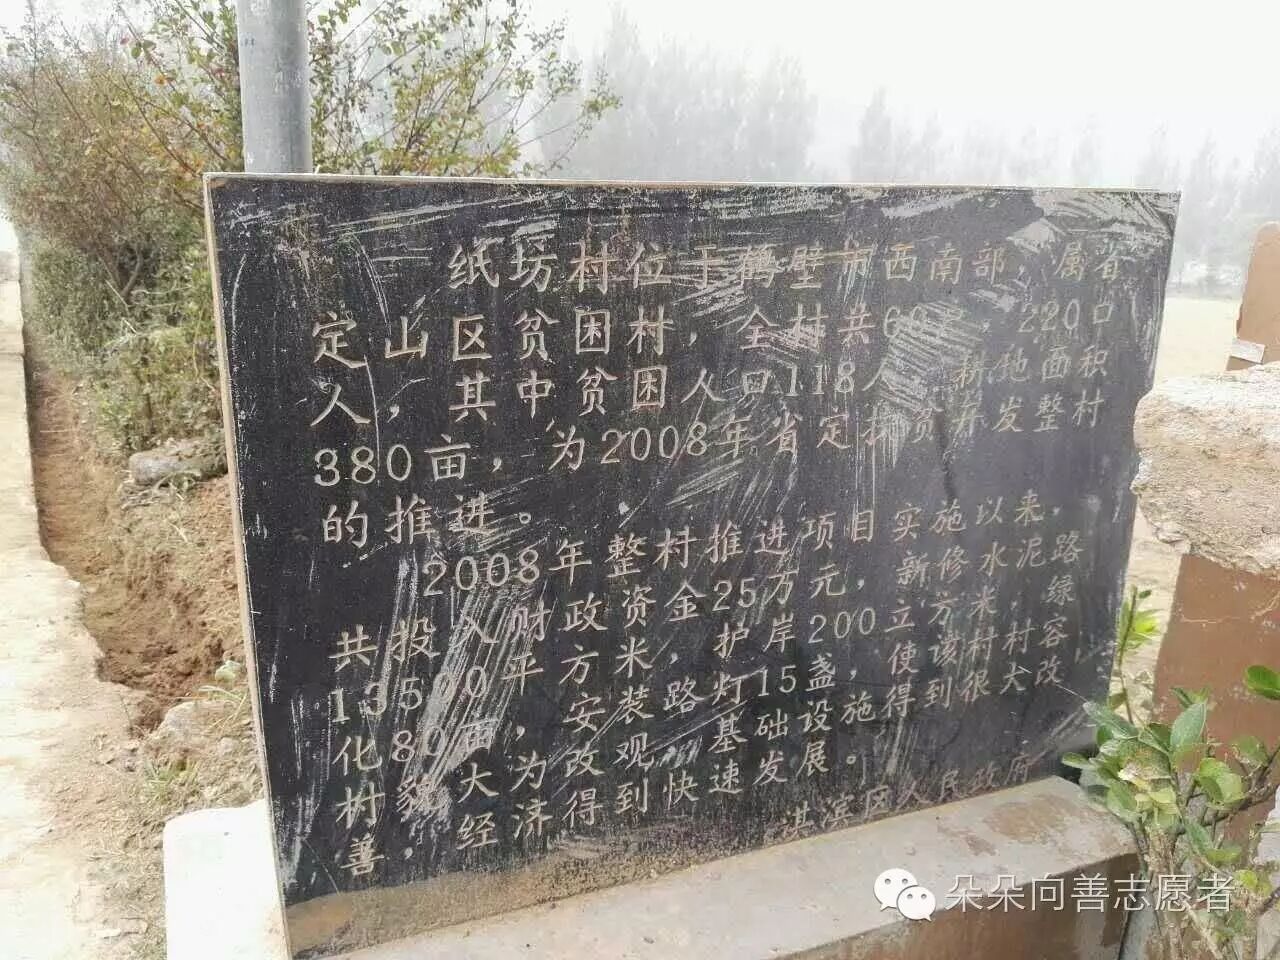 纸坊村位于鹤壁市西南部，属省
定山区贫困村，全村共60户，220口
人，其中贫困人口118人，耕地面积
380亩，为2008年省定扶贫开发整村
的推进。
2008年整村推进项目实施以来，
共投入财政资金25万元，新修水泥路
13500平方米，护岸200立方米，绿
化80亩，安装路灯15盏，使该村村容
村貌大为改观，基础设施得到很大改
善，经济得到快速发展。
淇滨区人民政府
朵朵向善志愿者